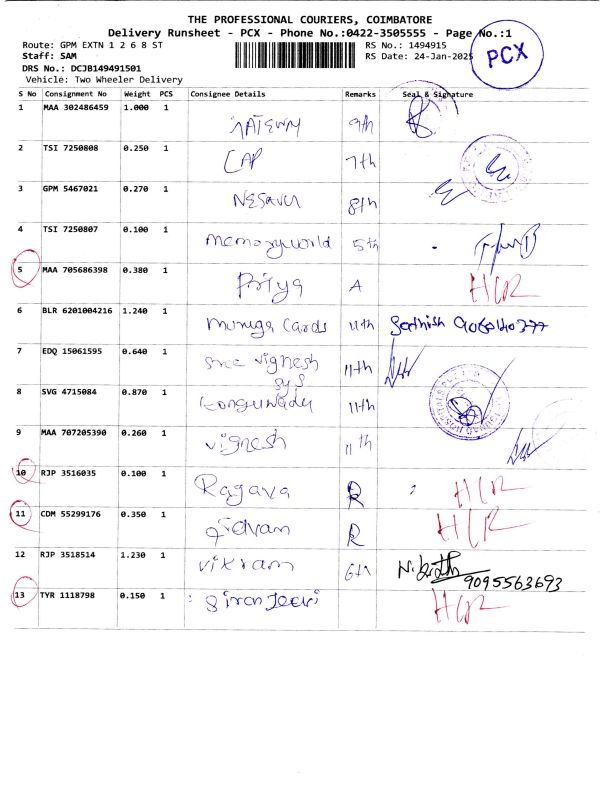 THE PROFESSIONAL COURIERS, COIMBATORE
Delivery Runsheet - PCX - Phone No.:0422-3505555 - Page No.:1
Route: GPM EXTN 1 2 6 8 ST RS No.: 1494915
Staff: SAM RS Date: 24-Jan-2025
PCX
DRS No.: DCJB149491501
Vehicle: Two Wheeler Delivery
S No Consignment No Weight PCS Consignee Details Remarks Seal & Signature
1 MAA 302486459 1.000 1 9th
2 TSI 7250808 0.250 1 CAP 7th
3 GPM 5467021 0.270 1 8th
4 TSI 7250807 0.100 1 memoryworld 5th
5 MAA 705686398 0.380 1 Priya A HCR
6 BLR 6201004216 1.240 1 muruga Cards 11th Sathish
7 EDQ 15061595 0.640 1 sree vignesh sys 11th
8 SVG 4715084 0.870 1 kongunadu 11th
9 MAA 707205390 0.260 1 vignesh 11th
10 RJP 3516035 0.100 1 Ragava R HCR
11 CDM 55299176 0.350 1 R HCR
12 RJP 3518514 1.230 1 vikram 6th 9095563693
13 TYR 1118798 0.150 1 HCR